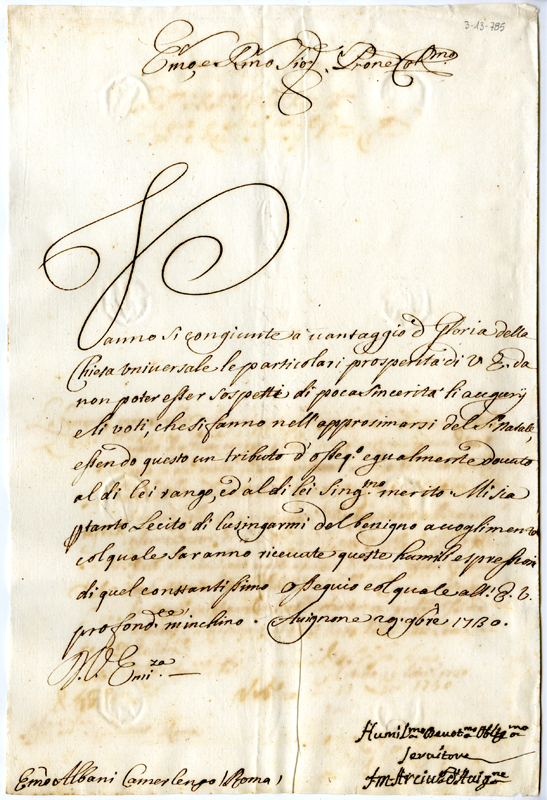 3-13-795
Em.o, e R.mo Sig.r Prone Col.mo
Vanno si congiunte a' vantaggio, e Gloria della
Chiesa vniversale le particolari prosperità di V. E. da
non poter esser sospetti di poca sincerità li augurij
e li voti, che si fanno nell'approsimarsi del S. Natale,
essendo questo un tributo d'osseq.o egualmente dovuto
al di lei rango, ed' al di lei sing.mo merito. Mi sia
ptanto lecito di lusingarmi del benigno accoglimento
col quale saranno ricevute queste humili espressioni
di quel constantissimo ossequio col quale all' E. V.
profond.te m'inchino. Auignone 29. 9bre 1730.
D. V. Emi.za
Humil.mo Deuot.mo Oblig.mo
Seruitore
F. M. Arciu.o d'Auig.ne
Em.o Albani Camerlengo (Roma)